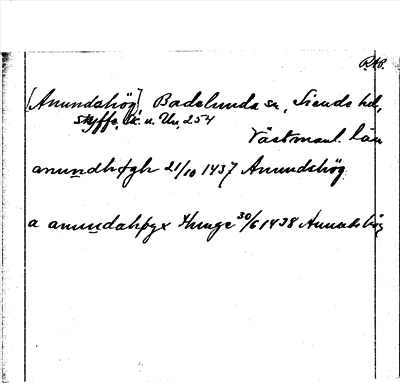 [Anundshög], Badelunda sn, Siende hd,
Styffe, Sk. u. Un, 254
Västmanl. län
anundhøgh 21/10 1437 Anundshög
a anundahøgx thinge 30/6 1438 Anundshög